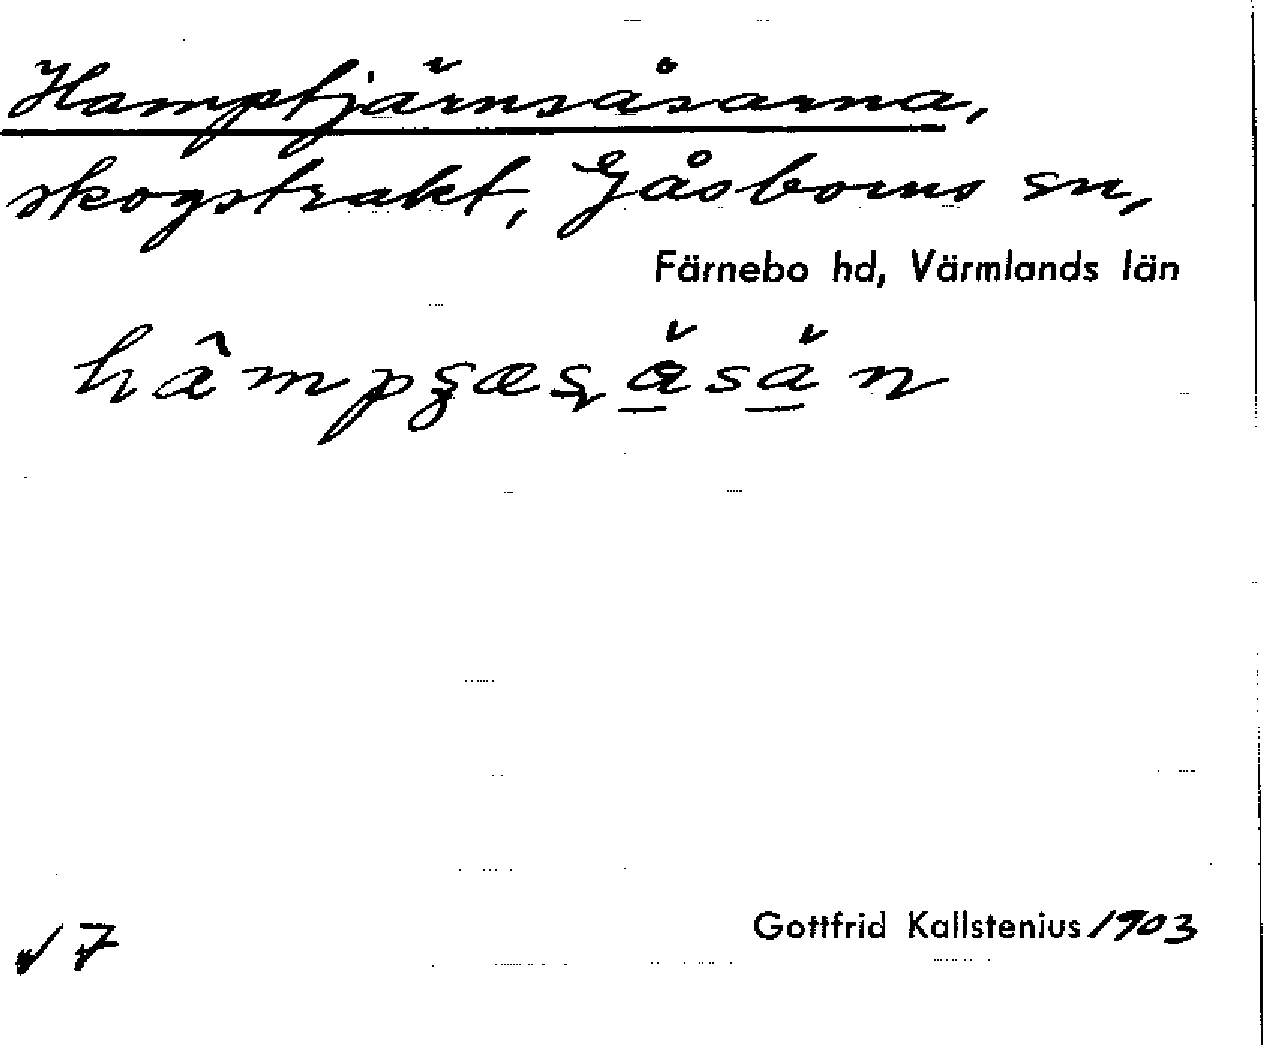 Hamptjärnsåsarna,
skogstrakt, Gåsborns sn,
Färnebo hd, Värmlands län
√ 7
Gottfrid Kallstenius 1903